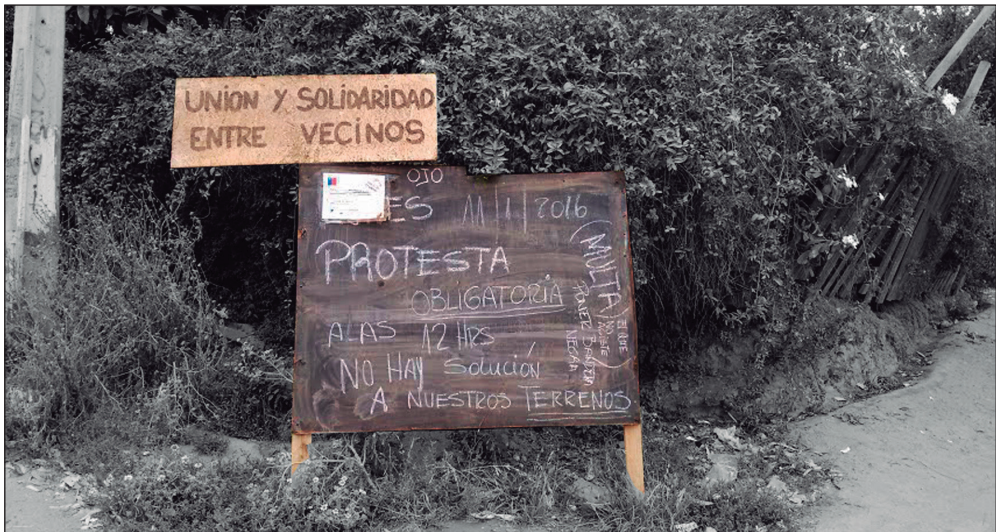 UNION Y SOLIDARIDAD
ENTRE VECINOS
OJO
ES 11 1 2016
PROTESTA
OBLIGATORIA
A LAS 12 HRS
NO HAY SOLUCIÓN
A NUESTROS TERRENOS
(MULTA)